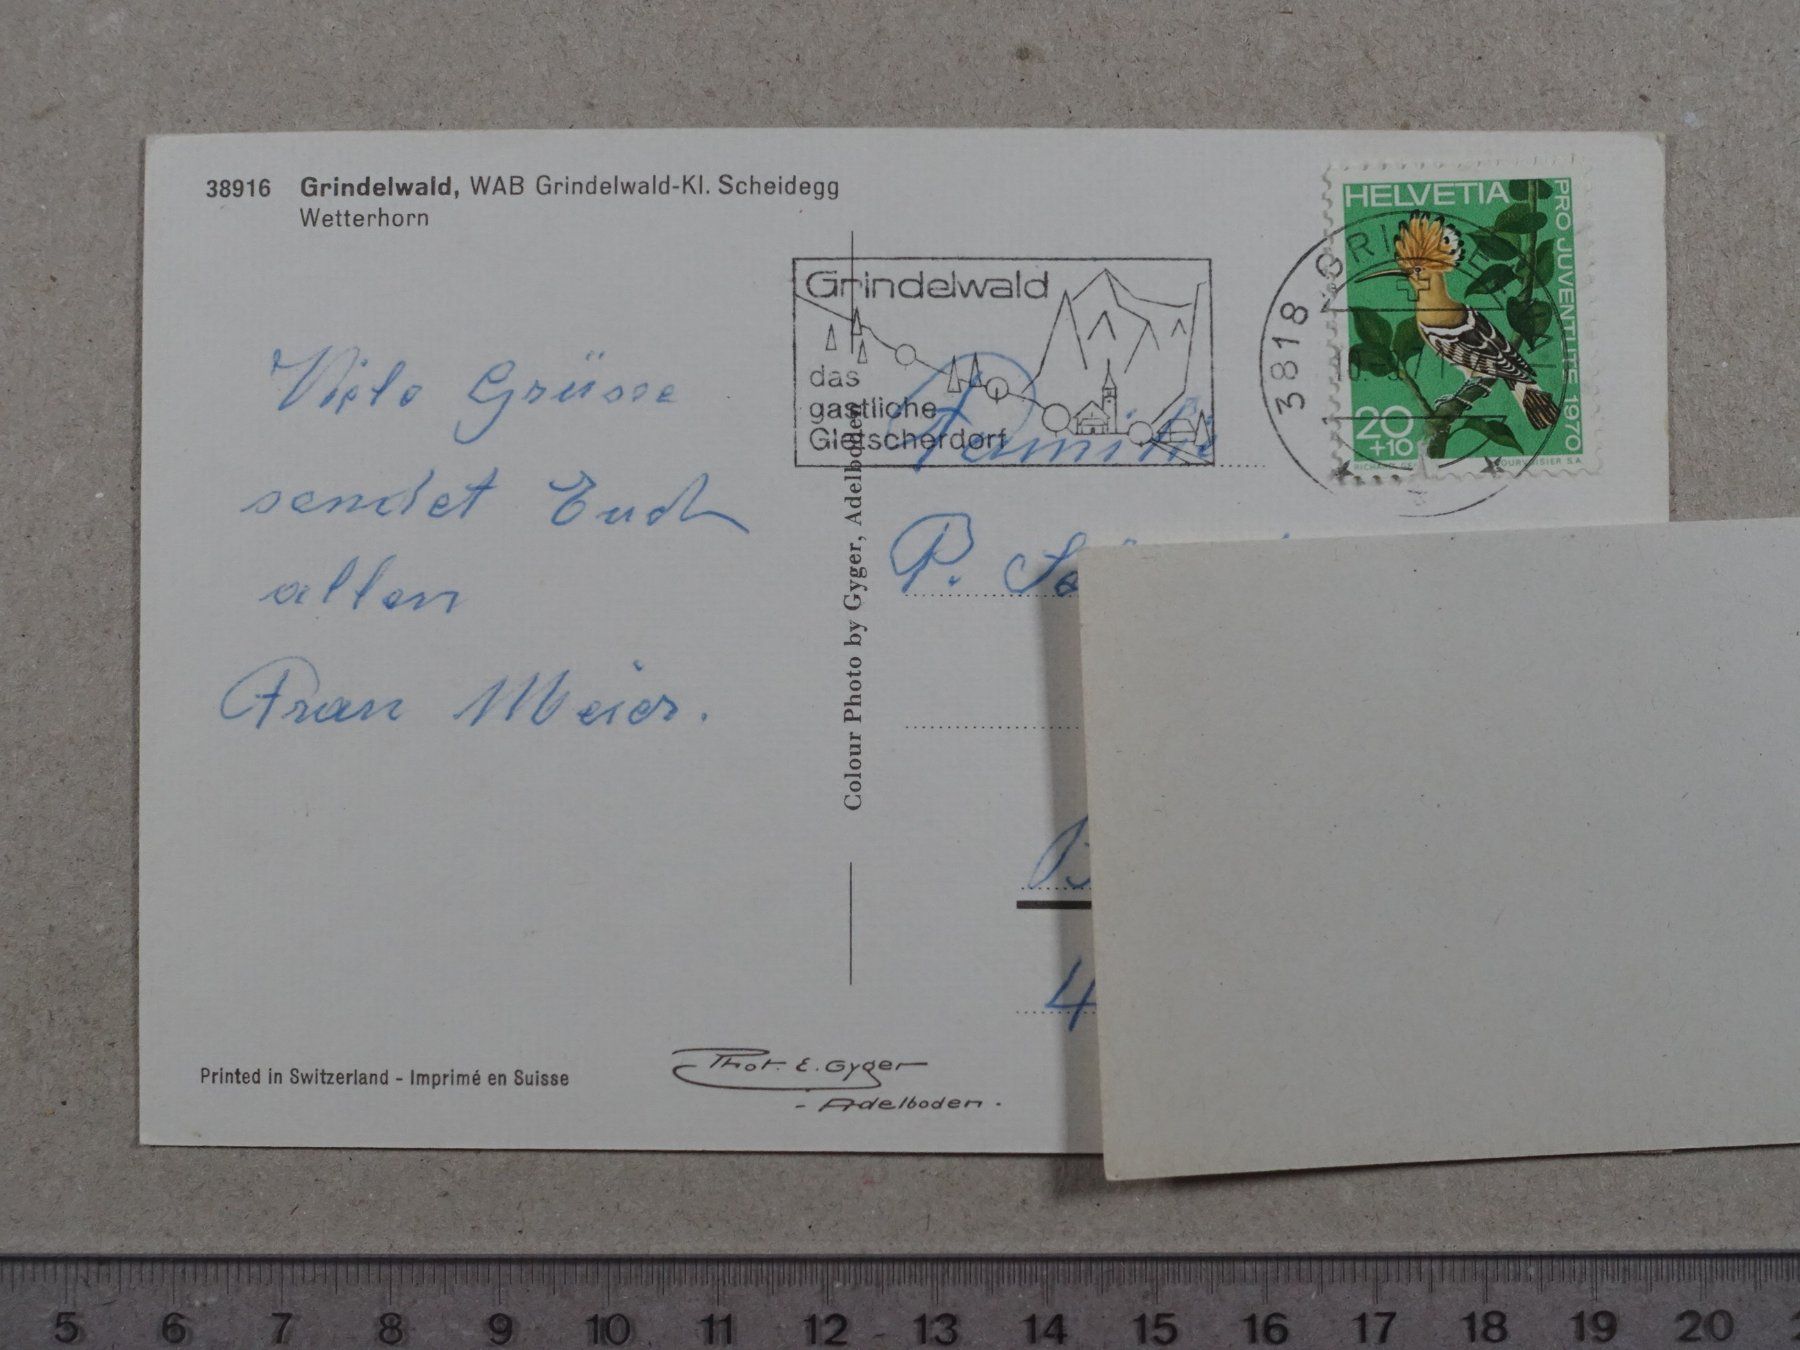 38916 Grindelwald, WAB Grindelwald-Kl. Scheidegg
Wetterhorn
Grindelwald
das
gastliche
Gletscherdorf
HELVETIA
PRO JUVENTUTE 1970
20
+10
3818 GRI
Viele Grüsse
sendet Euch
allen
Frau Meier.
Familie
P.
4
Colour Photo by Gyger, Adelboden
Printed in Switzerland - Imprimé en Suisse
Phot. E. Gyger
- Adelboden -
5 6 7 8 9 10 11 12 13 14 15 16 17 18 19 20